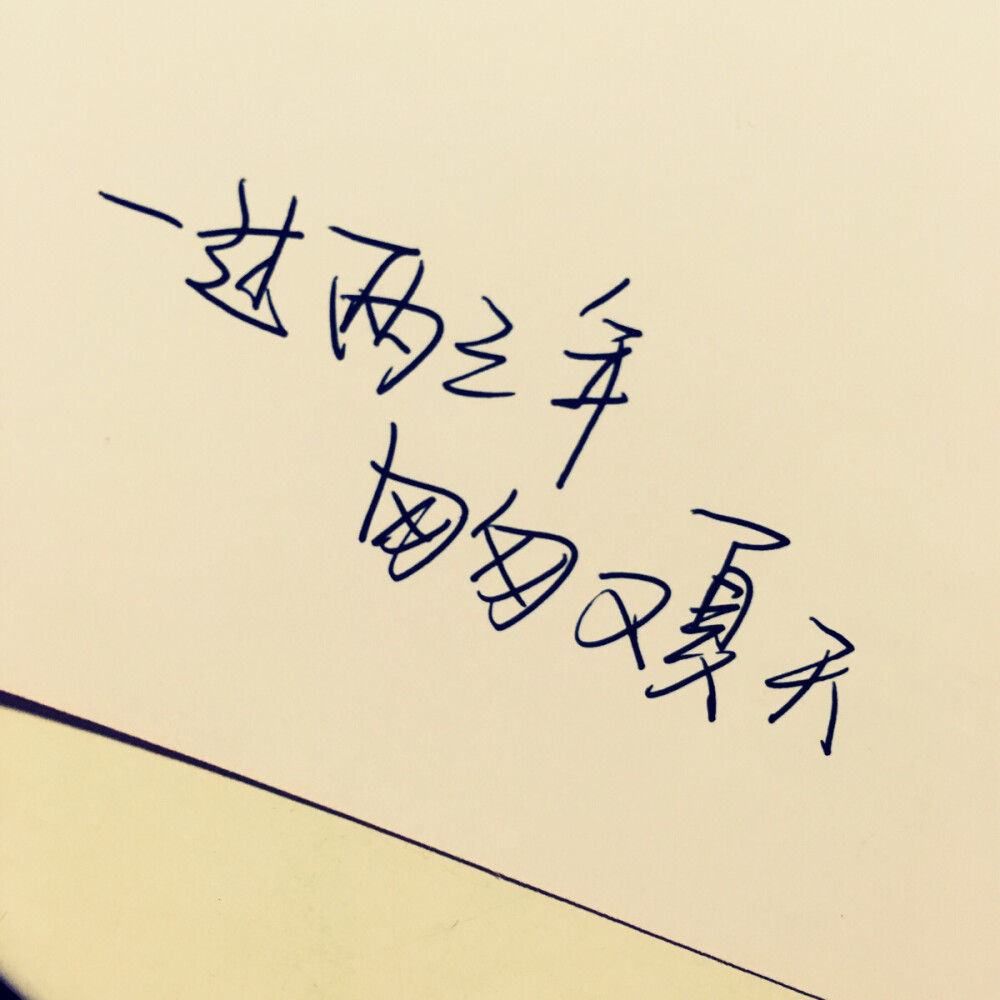 一越两三年
匆匆又夏天